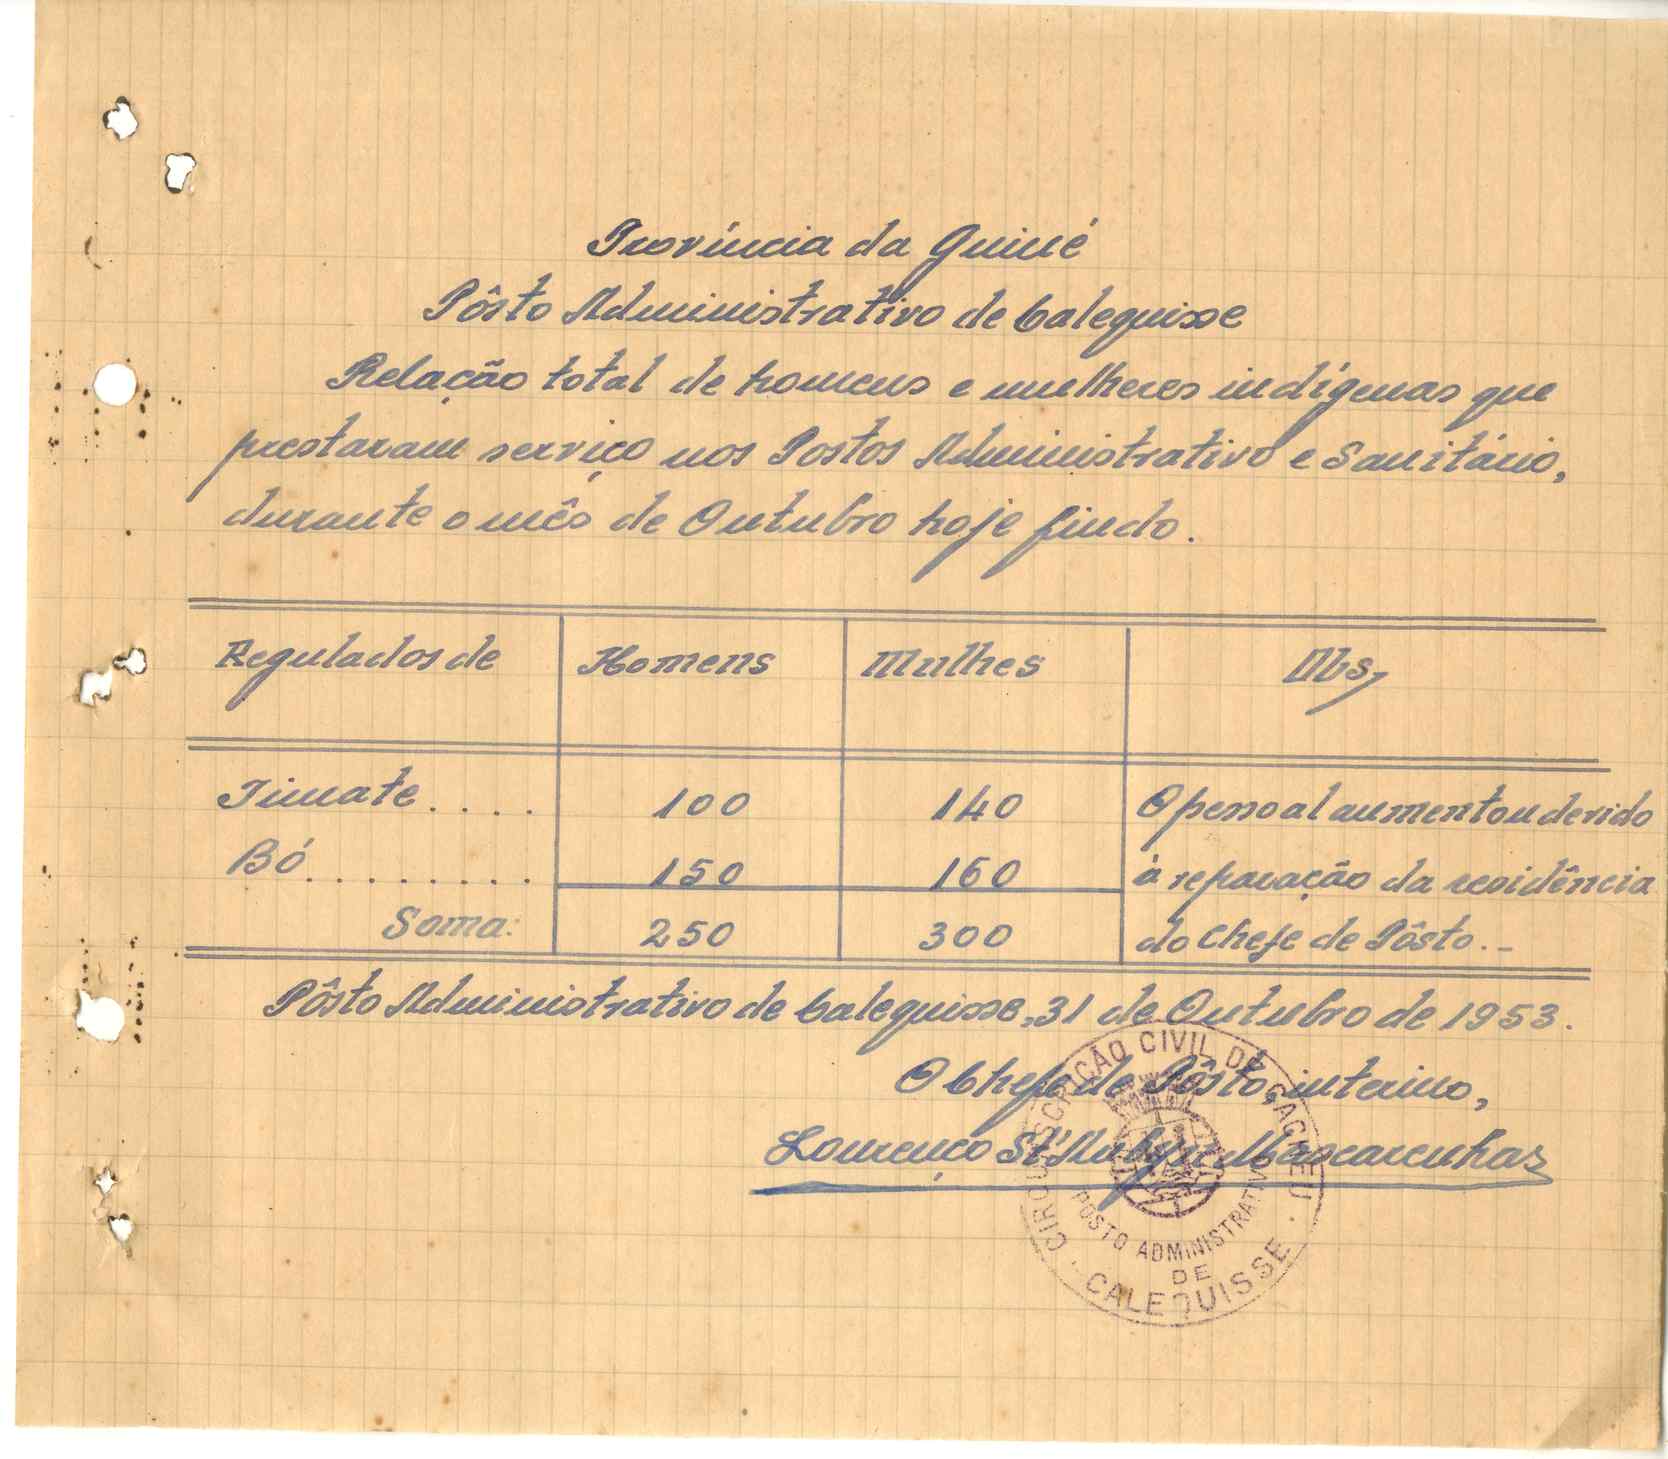 Província da Guiné
Pôsto Administrativo de Calequisse
Relação total de homens e mulheres indígenas que
prestaram serviço nos Postos Administrativo e Sanitário,
durante o mês de Outubro hoje findo.
Regulados de Homens Mulhes Obs,
Timate.... 100 140 O pessoal aumentou devido
Bó......... 150 160 à reparação da residência
Soma: 250 300 do Chefe de Pôsto.-
Pôsto Administrativo de Calequisse, 31 de Outubro de 1953.
O Chefe de Pôsto, interino,
Lourenço St' Mascarenhas
CIRCUNSCRIÇÃO CIVIL DE CACHEU
POSTO ADMINISTRATIVO
DE
CALEQUISSE